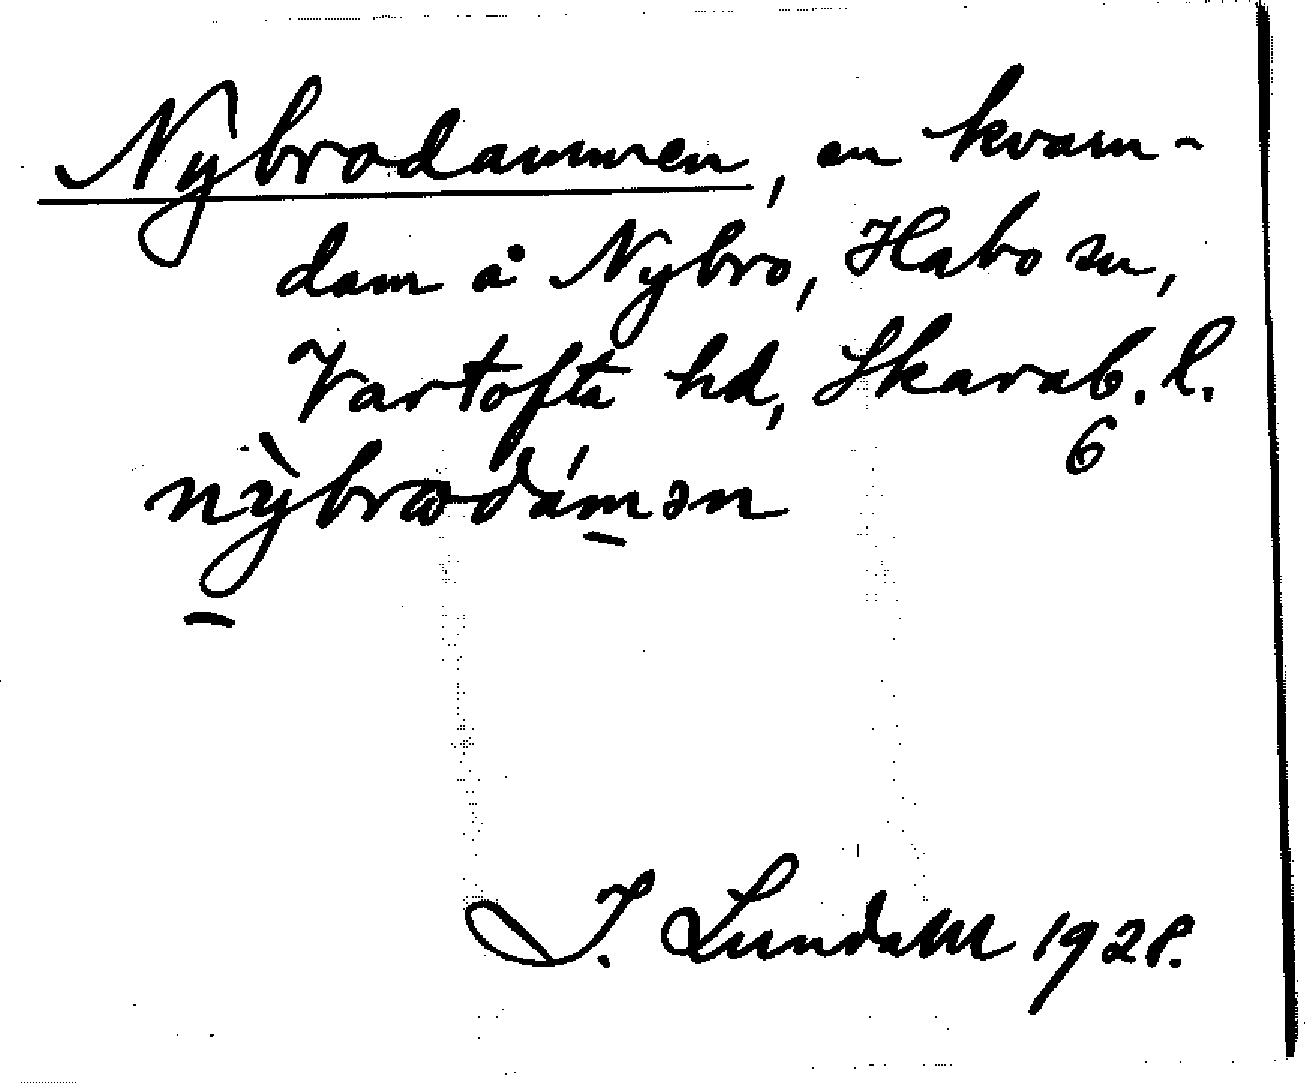 Nybrodammen, en kvarn-
dam å Nybro, Habo sn,
Vartofta hd, Skarab. l.
6
nỳbrωdámən
I. Lundahl 1928.